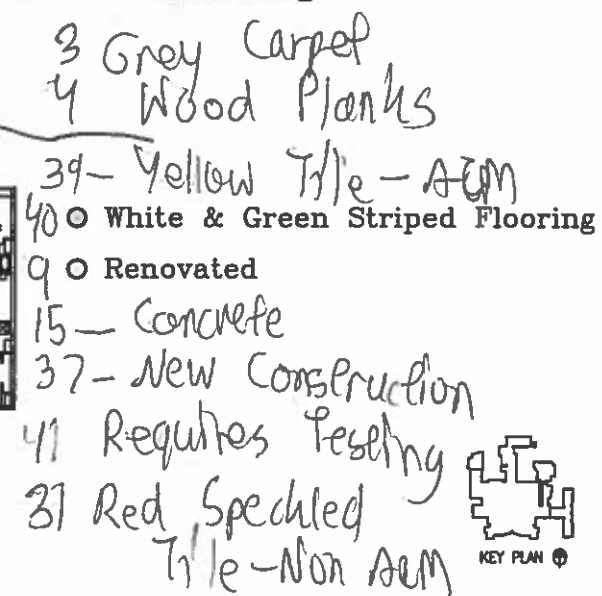 3 Grey Carpet
4 Wood Planks
39- Yellow Tile - ACM
40 White & Green Striped Flooring
9 Renovated
15 - Concrete
37- New Construction
41 Requires Testing
31 Red Speckled
Tile-Non ACM
KEY PLAN